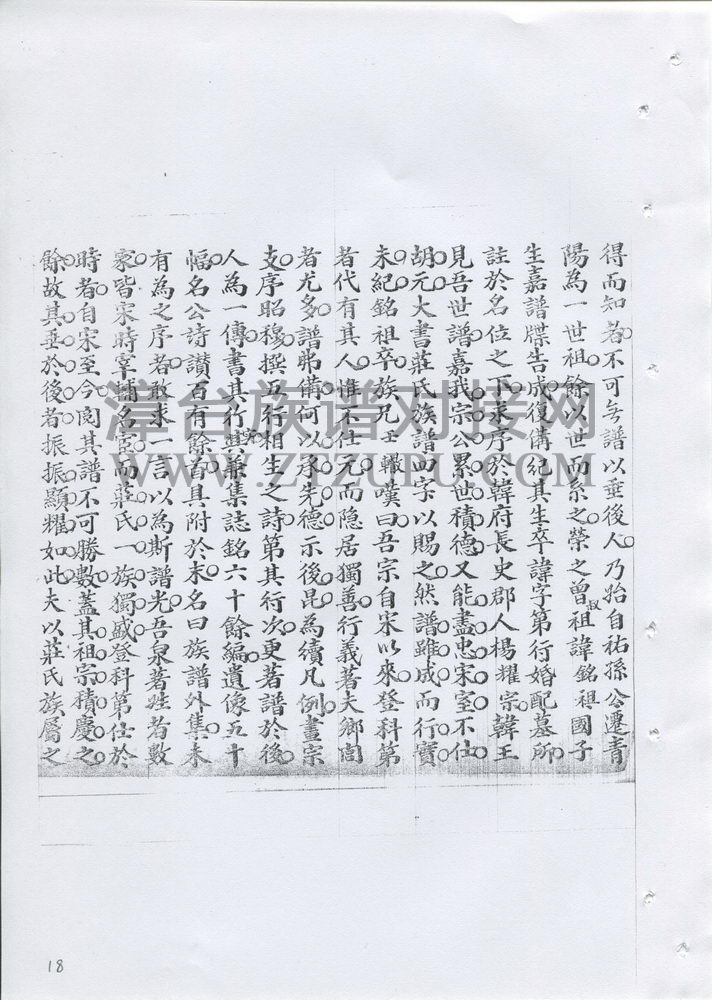 得而知者不可無譜以垂後人乃始自祐孫公遷青
陽為一世祖餘以世而系之榮之曾叔祖諱銘祖國子
生嘉譜牒告成復備紀其生卒諱字第行婚配墓所
註於名位之下求序於韓府長史郡人楊耀宗韓王
見吾世譜嘉我宗公累世積德又能盡忠宋室不仕
胡元大書莊氏族譜四字以賜之然譜雖成而行實
未紀銘祖卒族兄王報嘆曰吾宗自宋以來登科第
者代有其人惟不仕元而隐居獨善行義著夫鄉閭
者尤多譜弗備何以承先德示後昆為續凡例畫宗
支序昭穆撰五行相生之詩第其行次更著譜於後
人為一傳書其行與兼集誌銘六十餘編遺像五十
幅名公詩讃百有餘首具附於末名曰族譜外集未
有為之序者敢求一言以為斯譜光吾泉著姓者數
家皆宋時宰輔名宦而莊氏一族獨盛登科第仕於
時者自宋至今閱其譜不可勝數蓋其祖宗積慶之
餘故其垂於後者振振顯耀如此夫以莊氏族屬之
漳台族谱对接网
WWW.ZTZUPU.COM
18